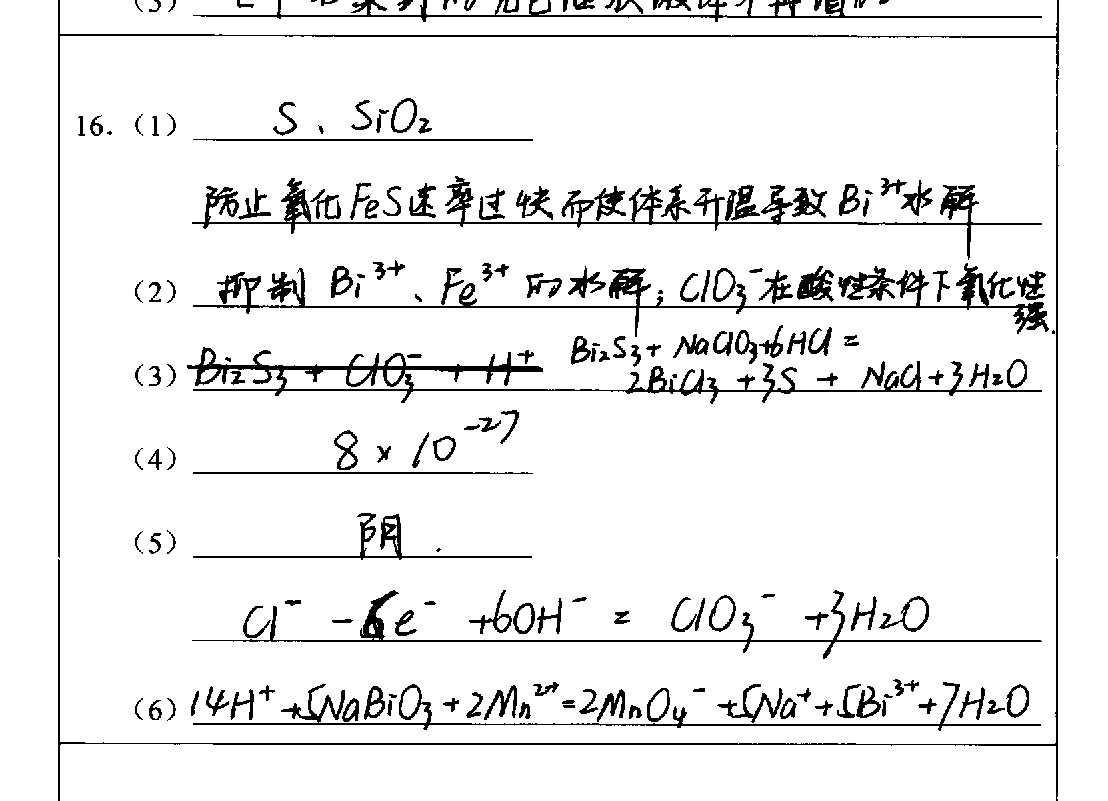 (3)
16. (1) S、SiO₂
防止氧化FeS速率过快而使体系升温导致Bi³⁺水解
(2) 抑制 Bi³⁺、Fe³⁺ 的水解；ClO₃⁻在酸性条件下氧化性强.
(3) Bi₂S₃ + ClO₃⁻ + H⁺ Bi₂S₃ + NaClO₃+6HCl =
2BiCl₃ +3S + NaCl+3H₂O
(4) 8×10⁻²⁷
(5) 阴.
Cl⁻ -6e⁻ +6OH⁻ = ClO₃⁻ +3H₂O
(6) 14H⁺+5NaBiO₃+2Mn²⁺=2MnO₄⁻+5Na⁺+5Bi³⁺+7H₂O